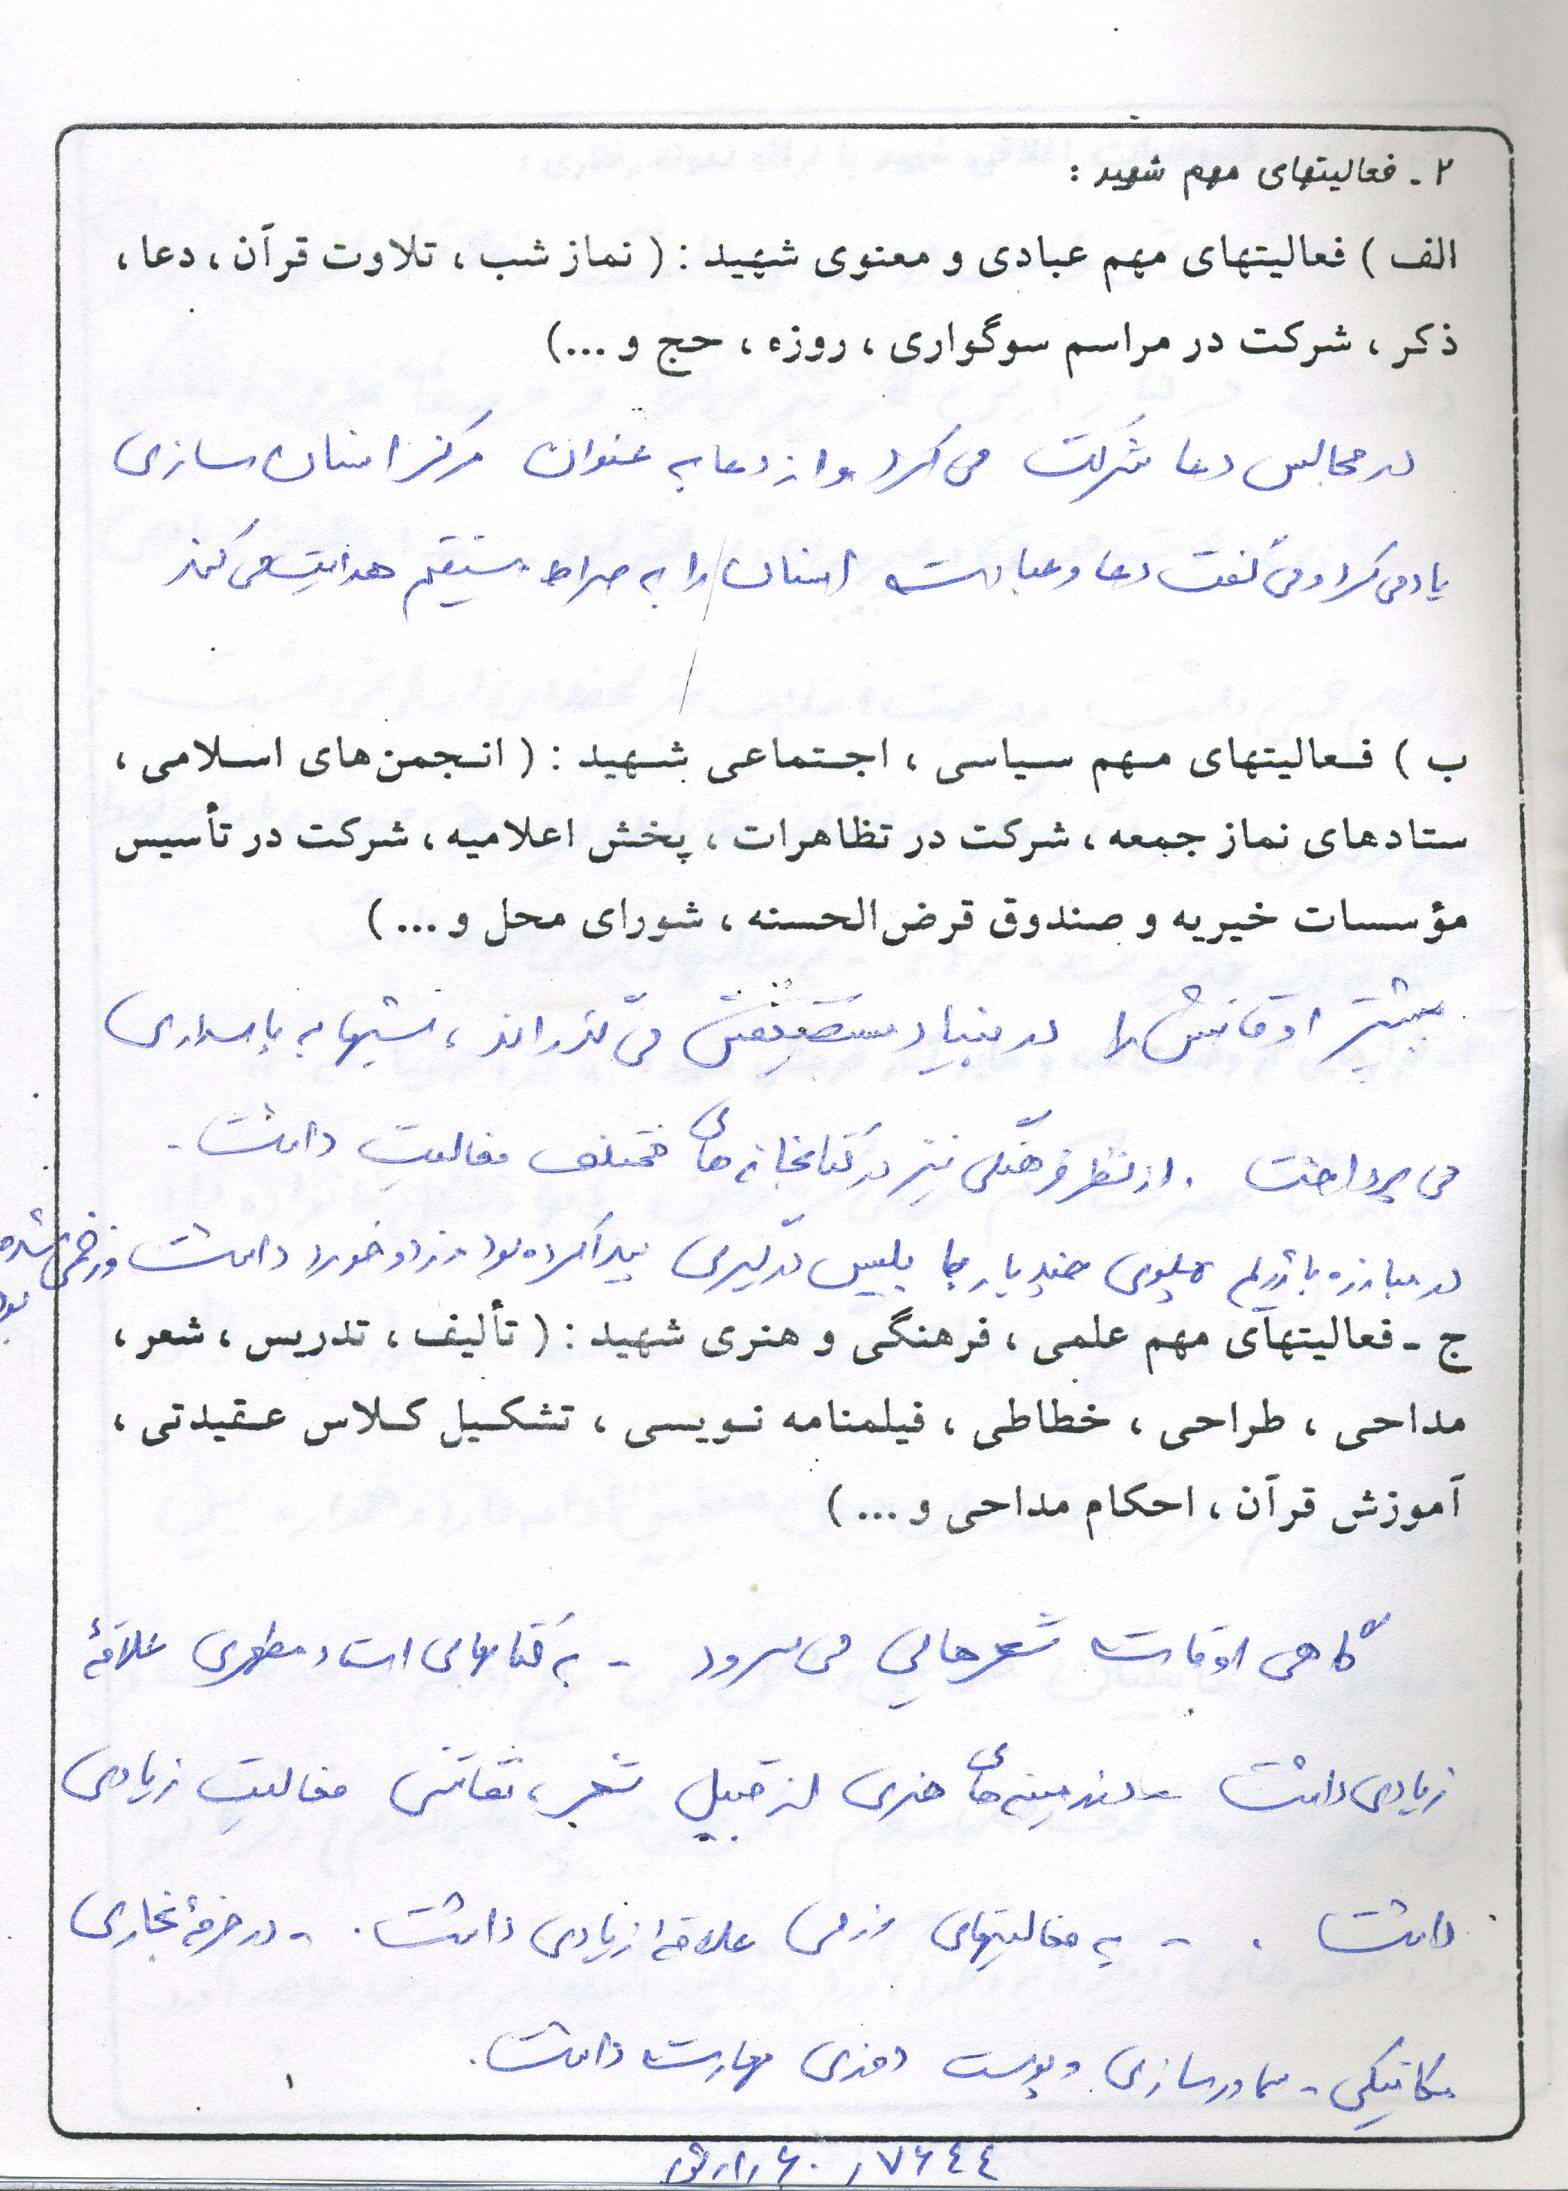 ۲ - فعالیتهای مهم شهید :
الف ) فعالیتهای مهم عبادی و معنوی شهید : ( نماز شب ، تلاوت قرآن ، دعا ،
ذکر ، شرکت در مراسم سوگواری ، روزه ، حج و ...)
در مجالس دعا شرکت می کرد و از دعا به عنوان مرکز انسان سازی
یاد می کرد و می گفت دعا و عبادت انسان را به صراط مستقیم هدایت می کند
ب ) فعالیتهای مهم سیاسی ، اجتماعی شهید : ( انجمن‌های اسلامی ،
ستادهای نماز جمعه ، شرکت در تظاهرات ، پخش اعلامیه ، شرکت در تأسیس
مؤسسات خیریه و صندوق قرض‌الحسنه ، شورای محل و ... )
بیشتر اوقاتش را در بنیاد مستضعفین می گذراند ، شبها به پاسداری
می پرداخت . از نظر فرهنگی نیز در کتابخانه های مختلف فعالیت داشت .
در مبارزه با رژیم پهلوی چند بار با پلیس درگیری پیدا کرده بود و زد و خورد داشت و زخمی شده بود
ج - فعالیتهای مهم علمی ، فرهنگی و هنری شهید : ( تألیف ، تدریس ، شعر ،
مداحی ، طراحی ، خطاطی ، فیلمنامه نویسی ، تشکیل کلاس عقیدتی ،
آموزش قرآن ، احکام مداحی و ... )
گاهی اوقات شعرهایی می سرود - به کتابهای استاد مطهری علاقهٔ
زیادی داشت - در زمینه های هنری از قبیل شعر ، نقاشی فعالیت زیادی
داشت . - به فعالیتهای رزمی علاقهٔ زیادی داشت . - در حرفهٔ نجاری
مکانیکی - سماورسازی و پوست دوزی مهارت داشت .
۱